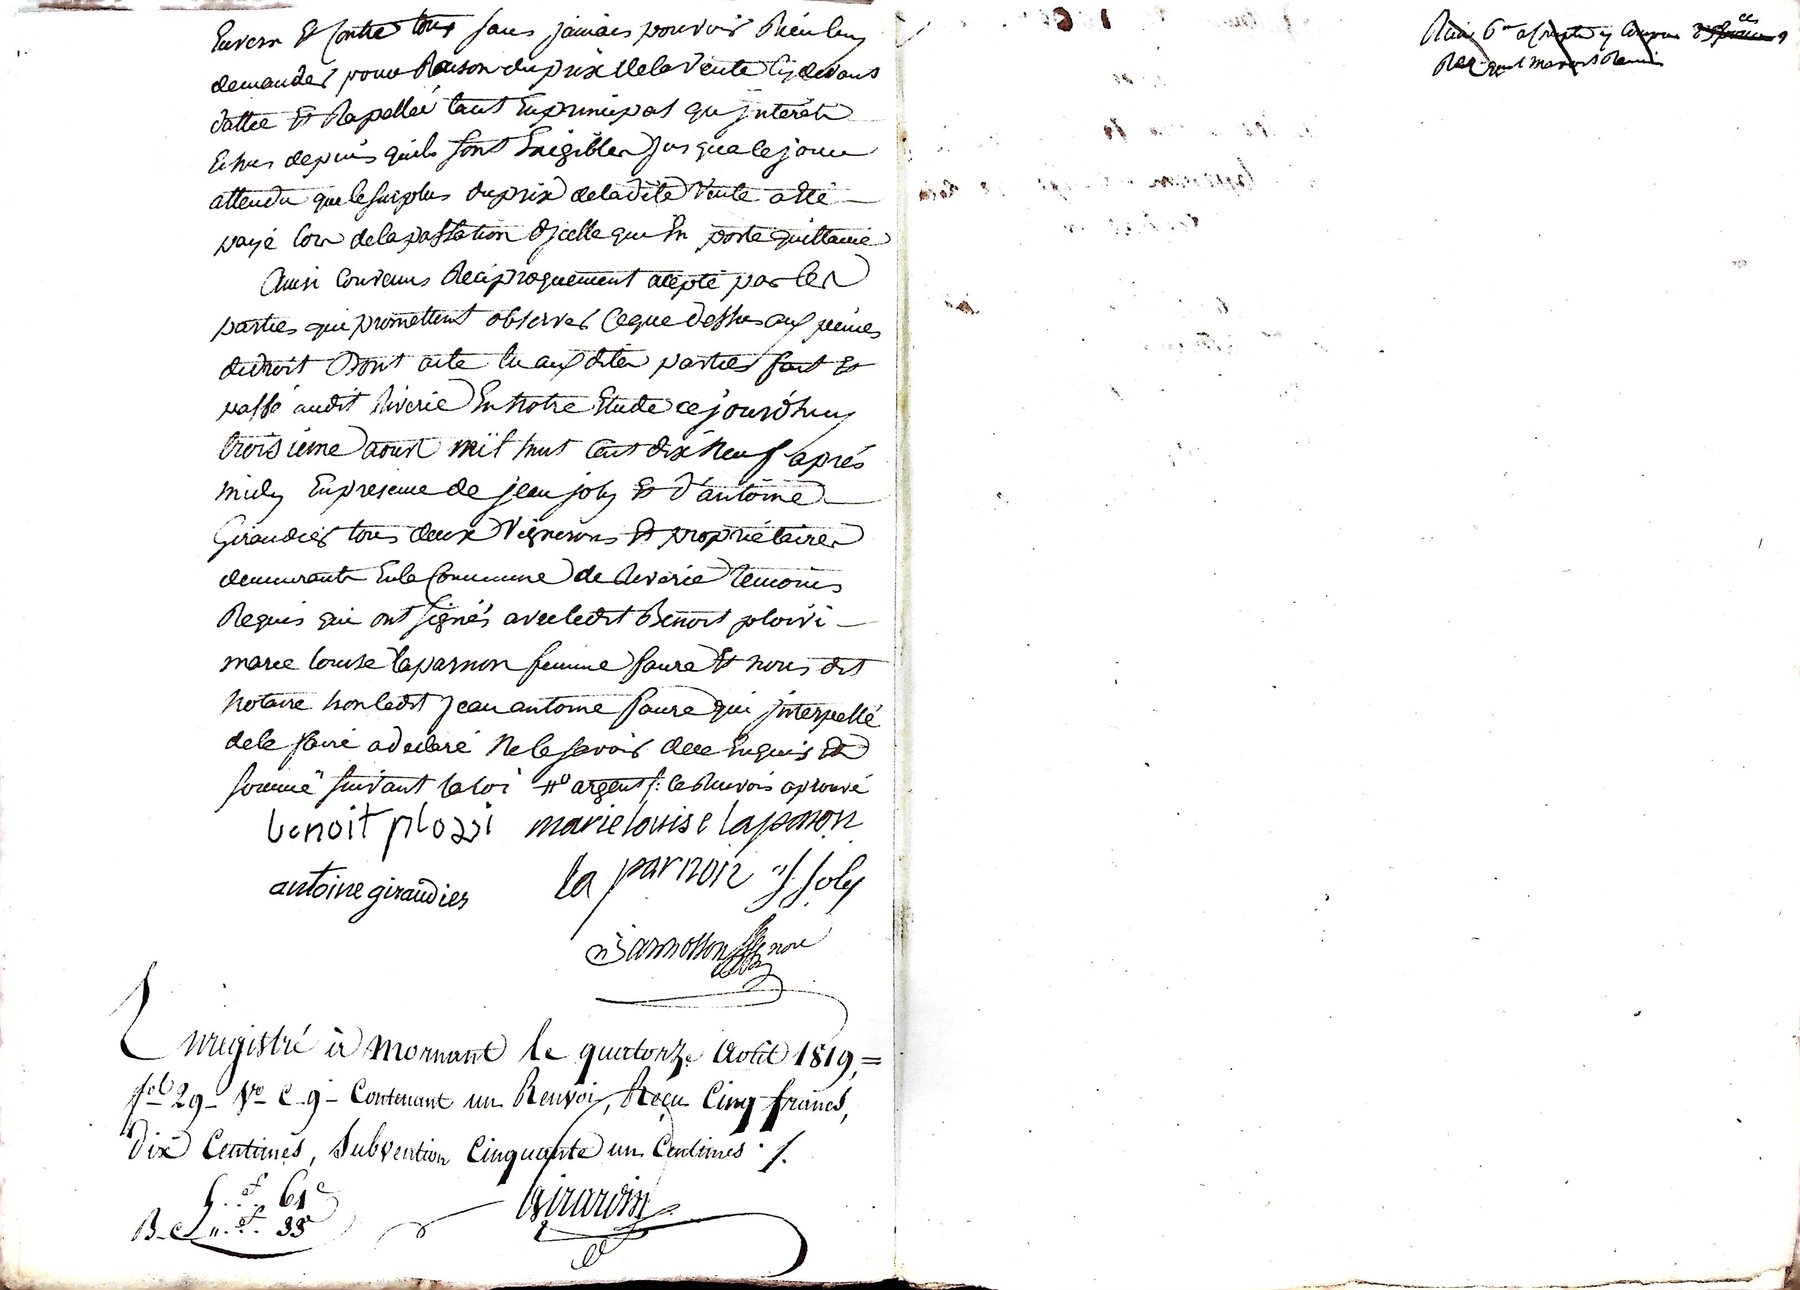 Envers Et Contre tous sans jamais pouvoir Rien leur
demander pour Raison du prix de la Vente cy devant
dattée Et Rapellée tant En principal qu'intérêts
Echus depuis quils sont Exigibles jusqua ce jour
attendu que le surplus du prix de ladite Vente a été
payé lors de la passation d'jcelle qui En porte quittance
Ainsi Convenus Reciproquement accepté par les
parties qui promettent observer Ce que dessus aux peines
de droit Dont acte lu aux dites parties fait Et
passé audit Riverie En notre Etude ce jourd'huy
troisieme aoust mil huit Cent dix Neuf après
midy En presence de jean joly Et d'antoine
Giraudier tous deux Vignerons Et propriétaires
demeurants En la Commune de Riverie temoins
Requis qui ont signés avec ledit Benoit
marie louise laparnon femme faure Et nous dit
Notaire non ledit jean antoine faure qui jnterpellé
de le faire a déclaré Ne le savoir de ce Enquis Et
sommé suivant la loi argent le Renvois aprouvé
benoit plossi marie louise laparnon
la parnoin J Joly
antoine giraudier
nore
Enregistré à Mornant le quatorze Août 1819,=
fol 29 Vo C 9 Contenant un Renvoi, Reçu Cinq francs,
dix Centimes, Subvention Cinquante un Centimes
5 f 61 c
B
Girardin